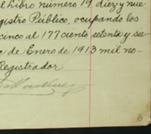 el libro número 19 diez y nue
egistro Público, ocupando los
cinco al 177 ciento setenta y se
o de Enero de 1913 mil no-
Registrador